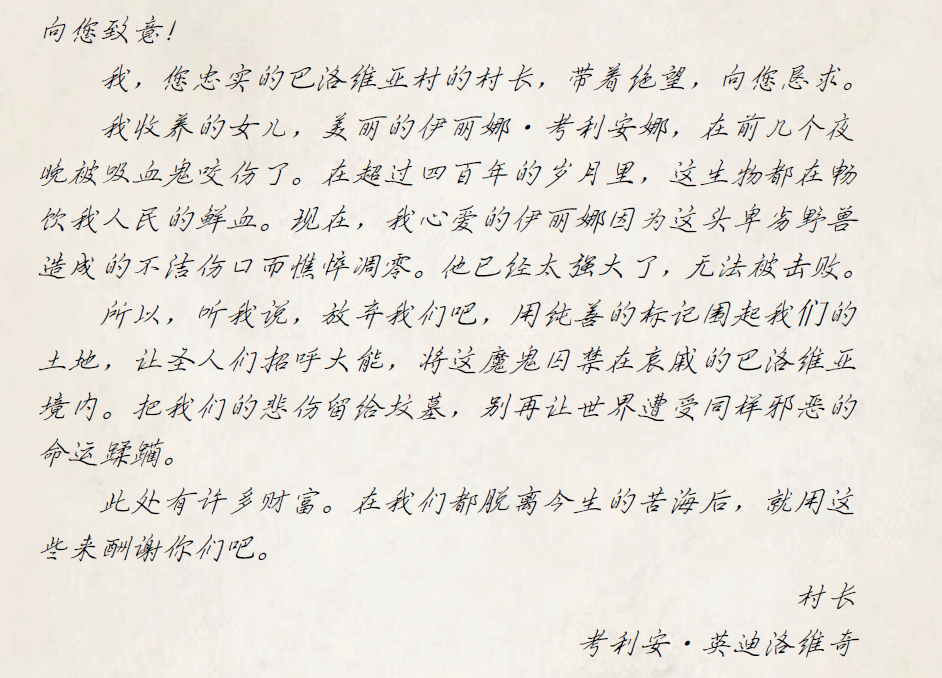 向您致意！
我，您忠实的巴洛维亚村的村长，带着绝望，向您恳求。
我收养的女儿，美丽的伊丽娜·考利安娜，在前几个夜
晚被吸血鬼咬伤了。在超过四百年的岁月里，这生物都在畅
饮我人民的鲜血。现在，我心爱的伊丽娜因为这头卑劣野兽
造成的不洁伤口而憔悴凋零。他已经太强大了，无法被击败。
所以，听我说，放弃我们吧，用纯善的标记围起我们的
土地，让圣人们招呼大能，将这魔鬼囚禁在哀戚的巴洛维亚
境内。把我们的悲伤留给坟墓，别再让世界遭受同样邪恶的
命运蹂躏。
此处有许多财富。在我们都脱离今生的苦海后，就用这
些来酬谢你们吧。
村长
考利安·英迪洛维奇